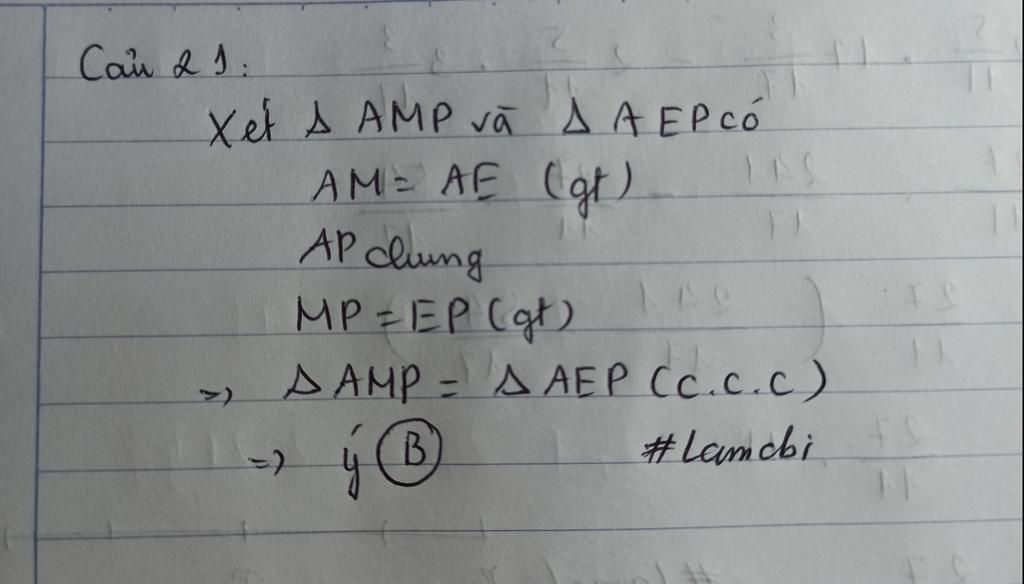 Câu 21:
Xét Δ AMP và Δ AEP có
AM = AE (gt)
AP chung
MP = EP (gt)
=> Δ AMP = Δ AEP (c.c.c)
=> ý B
#Lamchi